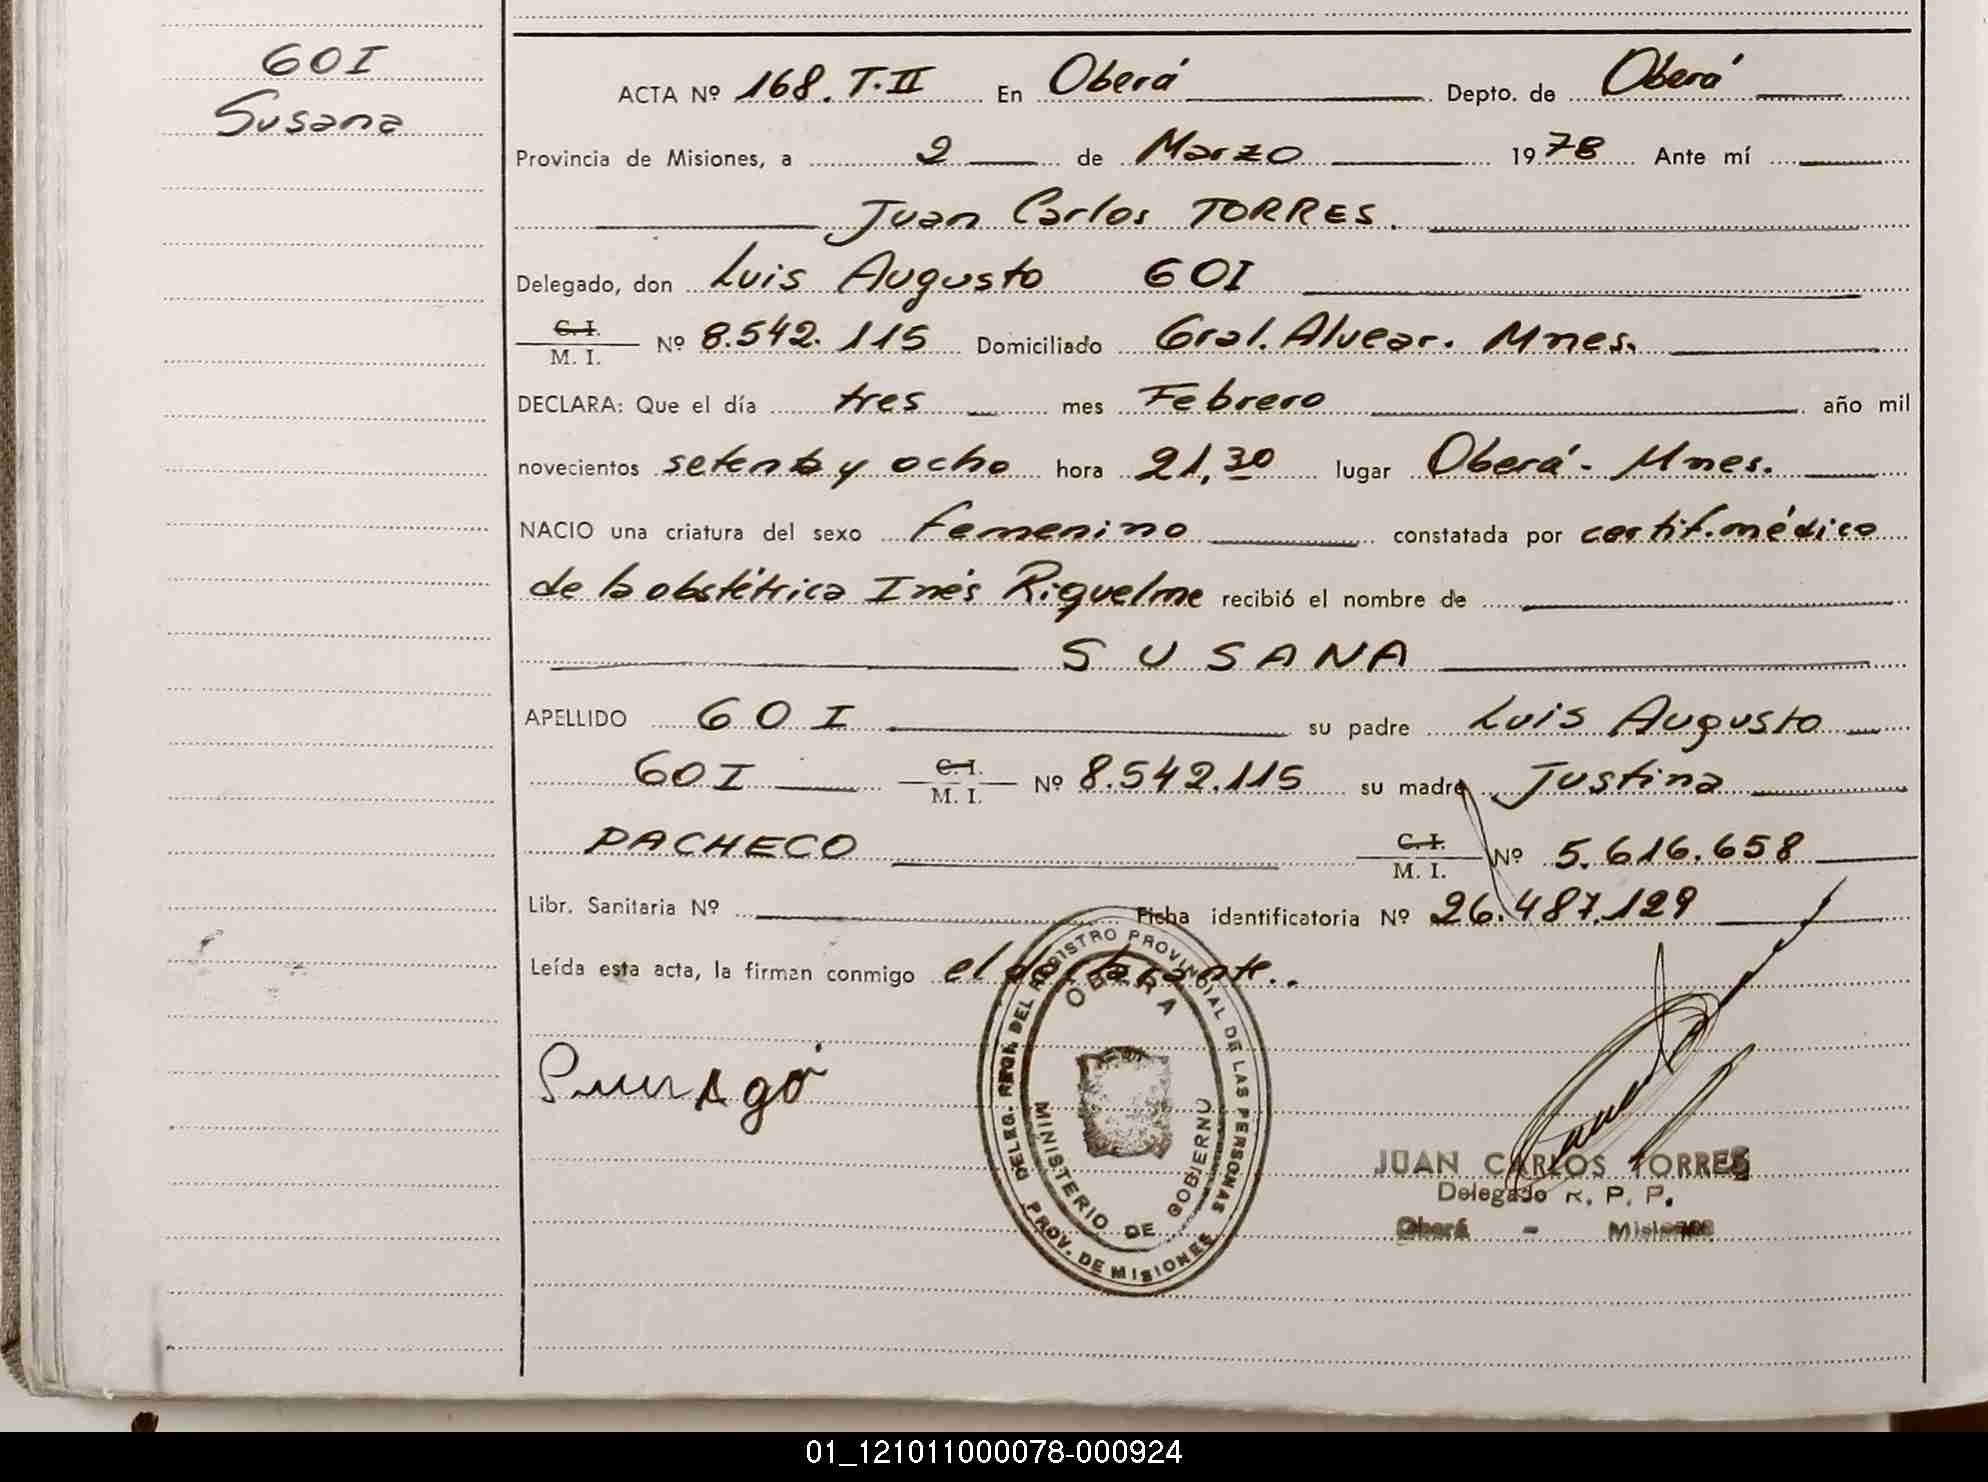 GOI
Susana
ACTA Nº 168. T.II En Oberá Depto. de Oberá
Provincia de Misiones, a 2 de Marzo 1978 Ante mí
Juan Carlos TORRES.
Delegado, don Luis Augusto GOI
C. I. M. I. Nº 8.542.115 Domiciliado Gral. Alvear. Mnes.
DECLARA: Que el día tres mes Febrero año mil
novecientos setenta y ocho hora 21,30 lugar Oberá - Mnes.
NACIO una criatura del sexo femenino constatada por certif. médico
de la obstétrica Inés Riquelme recibió el nombre de
SUSANA
APELLIDO GOI su padre Luis Augusto
GOI C. I. M. I. Nº 8.542.115 su madre Justina
PACHECO C. I. M. I. Nº 5.616.658
Libr. Sanitaria Nº Ficha identificatoria Nº 26.487.129
Leída esta acta, la firman conmigo el declarante..
DELEG. REGL. DEL REGISTRO PROVINCIAL DE LAS PERSONAS
OBERA
MINISTERIO DE GOBIERNO
PROV. DE MISIONES
JUAN CARLOS TORRES
Delegado R. P. P.
Oberá - Misiones
01_121011000078-000924